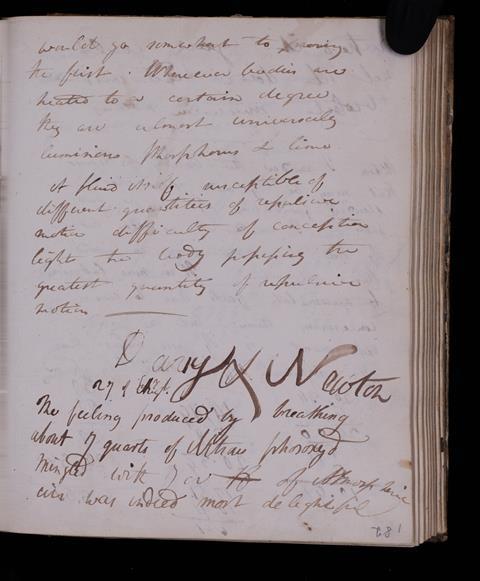 would go somewhat to proving
the first. Whenever bodies are
heated to a certain degree
they are almost universally
luminous Phosphorus & lime
A fluid itself susceptible of
different quantities of repulsive
motion difficulty of conception
light the body possessing the
greatest quantity of repulsive
motion
Davy & Newton
27 of
The feeling produced by breathing
about 7 quarts of Nitrous phosoxyd
mingled with 7 or of Atmospheric
air was indeed most delightful